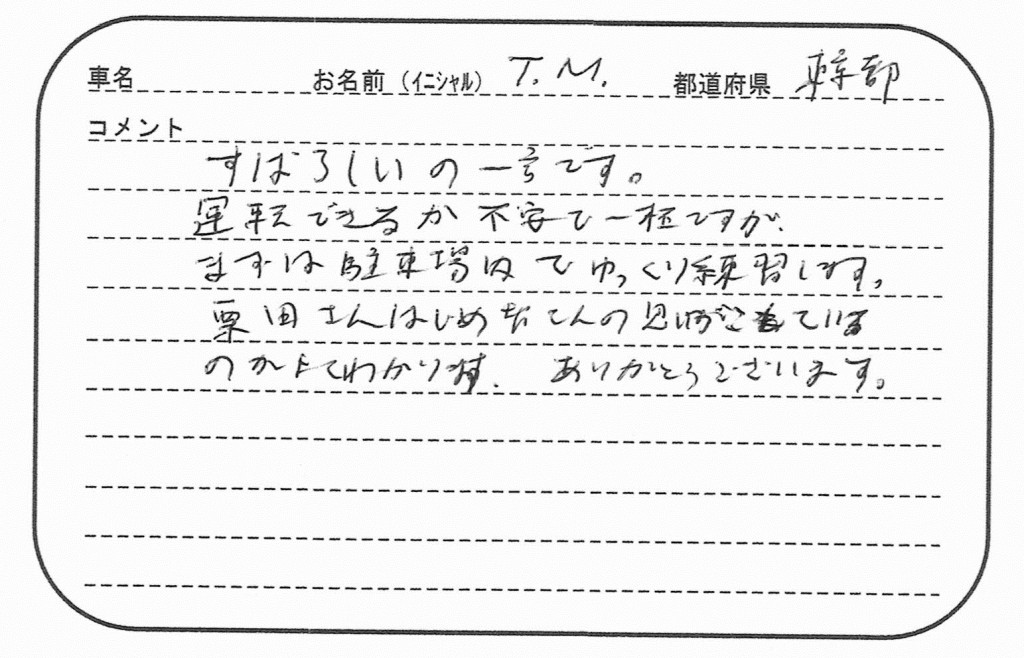 車名 お名前（イニシャル） T.M. 都道府県
コメント
すばらしいの一言です。
運転できるか不安で一杯ですが、
まずは駐車場内でゆっくり練習します。
栗田さんはじめ の思いがこもっている
のがよくわかります。ありがとうございます。